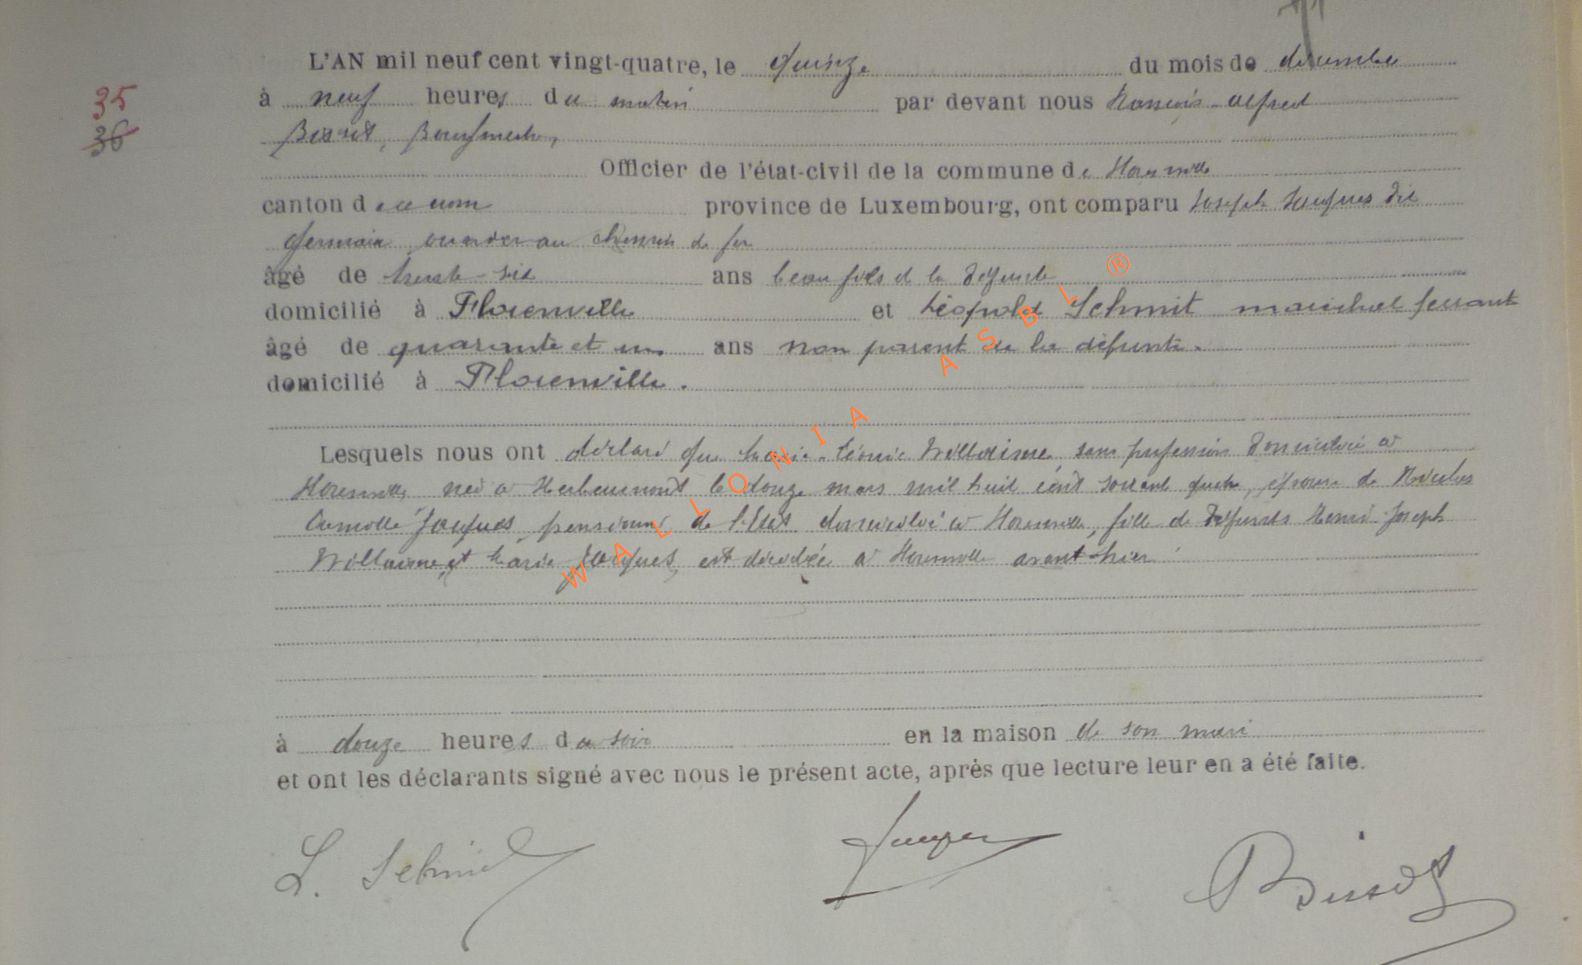 L'AN mil neuf cent vingt-quatre, le quinze du mois de décembre
35
à neuf heures du matin par devant nous François Alfred
36
Bourgmestre,
Officier de l'état-civil de la commune de Florenville
canton de ce nom province de Luxembourg, ont comparu Joseph Jacques dit
Germain ouvrier au chemin de fer
âgé de trente-six ans beau fils de la défunte
domicilié à Florenville et Léopold Schmit maréchal ferrant
âgé de quarante et un ans non parent de la défunte.
domicilié à Florenville.
Lesquels nous ont déclaré que Marie-Léonie Willaime, sans profession domiciliée à
Florenville née à Herbeumont le douze mars mil huit cent soixante quatre, épouse de Nicolas
Camille Jacques, pensionné de l'Etat domicilié à Florenville, fille de défunts Henri-Joseph
Willaime et Marie Jacques, est décédée à Florenville avant-hier
à douze heures du soir en la maison de son mari
et ont les déclarants signé avec nous le présent acte, après que lecture leur en a été faite.
L. Schmit Jacques
WALLONIA ASBL ®